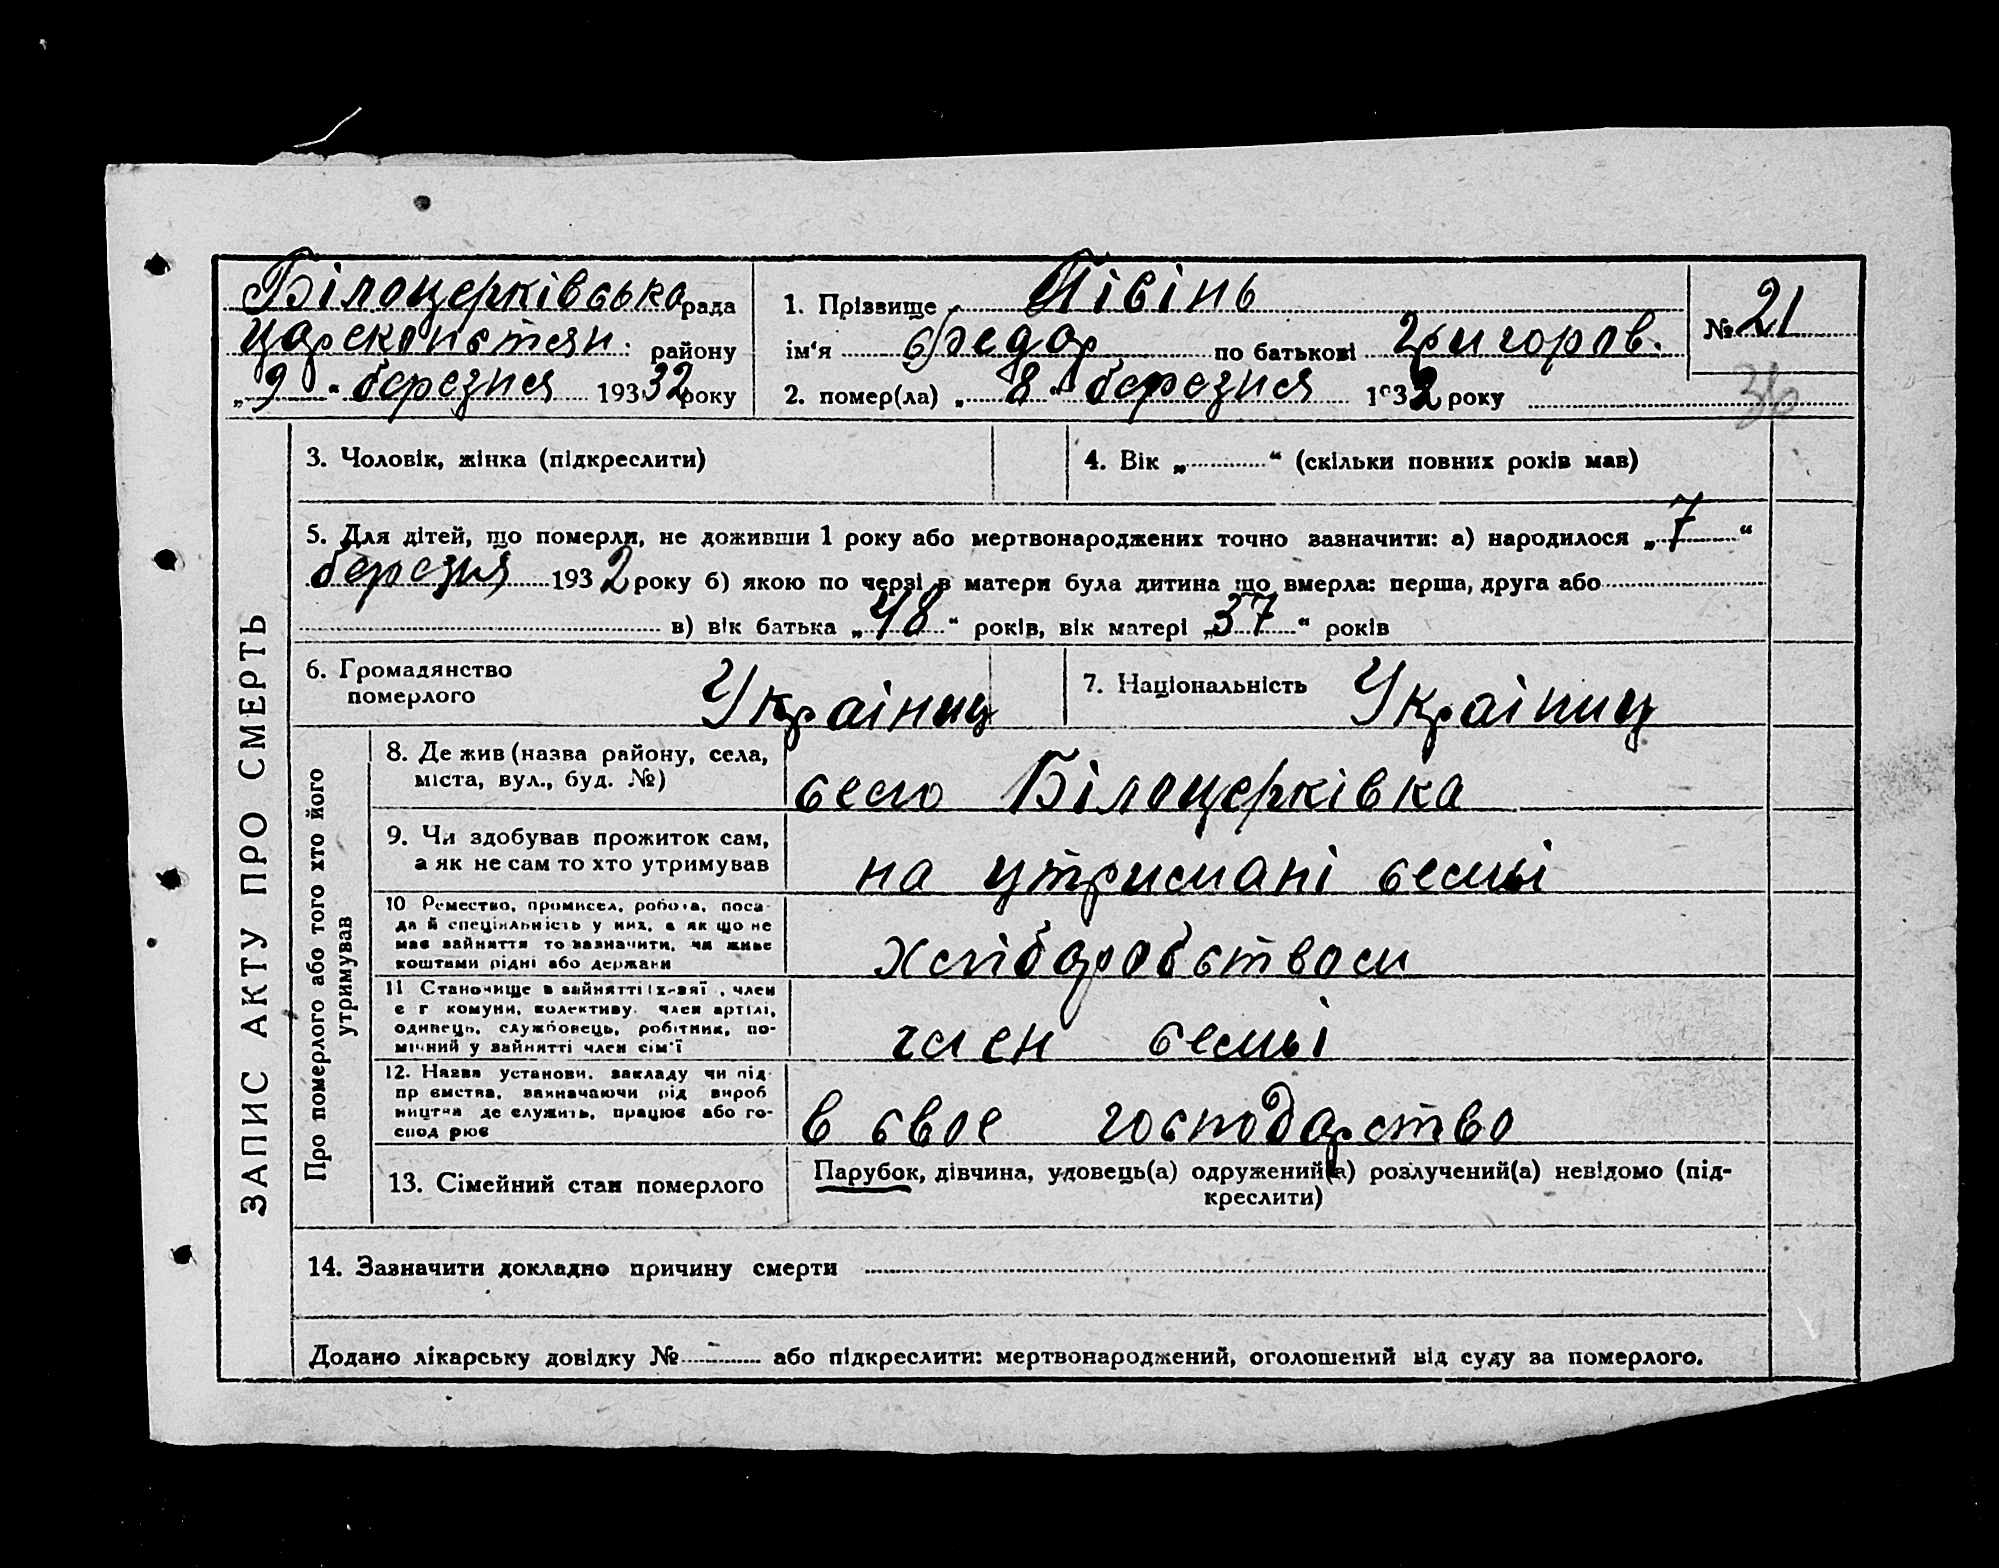 Білоцерківська рада
Царсконстян. району
„9“ березня 193 32 року
1. Прізвище Півінь
ім'я Федор по батькові Григоров.
2. помер(ла) „8“ березня 1932 року
№ 21
36
ЗАПИС АКТУ ПРО СМЕРТЬ
3. Чоловік, жінка (підкреслити)
4. Вік „ “ (скільки повних років мав)
5. Для дітей, що померли, не доживши 1 року або мертвонароджених точно зазначити: а) народилося „7“
березня 1932 року б) якою по черзі в матери була дитина що вмерла: перша, друга або
в) вік батька „48“ років, вік матері „37“ років
6. Громадянство
померлого
Україниц
7. Національність Україниц
Про померлого або того хто його
утримував
8. Де жив (назва району, села,
міста, вул., буд. №)
село Білоцерківка
9. Чи здобував прожиток сам,
а як не сам то хто утримував
на утримані семьі
10 Ремество, промисел, робота, поса-
да й спеціяльність у них, а як що не
має зайняття то зазначити, чи живе
коштами рідні або держави
хліборобством
11 Становище в зайнятті , член
с г комуни, колективу. член артілі,
одинець, службовець, робітник, по-
мічний у зайнятті член сім'ї
член семьі
12. Назва установи, закладу чи під-
пр ємства, зазначаючи рід вироб
ництва де служить, працює або го-
спод рює
в своє господарство
13. Сімейний стан померлого
Парубок, дівчина, удовець(а) одружений(а) розлучений(а) невідомо (під-
креслити)
14. Зазначити докладно причину смерти
Додано лікарську довідку № - або підкреслити: мертвонароджений, оголошений від суду за померлого.